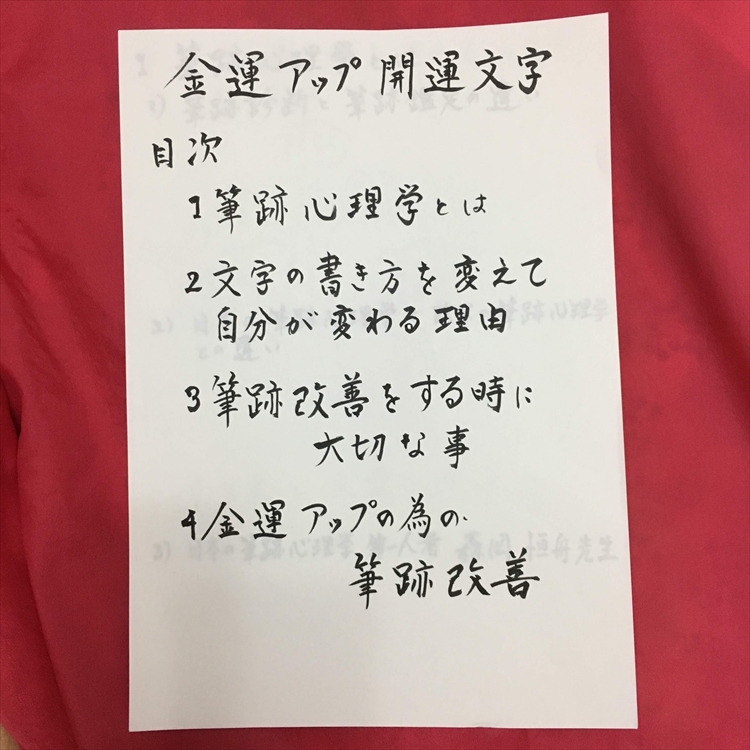 金運アップ開運文字
目次
1 筆跡心理学とは
2 文字の書き方を変えて
自分が変わる理由
3 筆跡改善をする時に
大切な事
4 金運アップの為の
筆跡改善